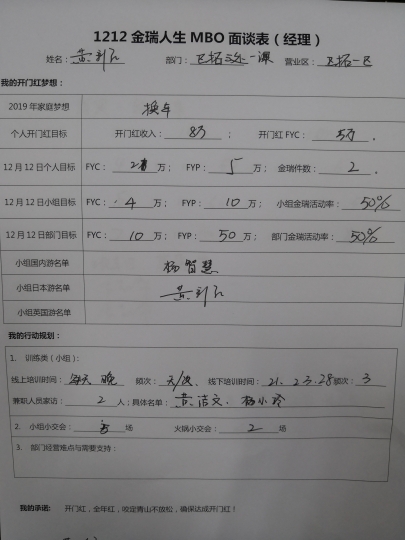 1212 金瑞人生 MBO 面谈表（经理）
姓名： 部门： 营业区：
我的开门红梦想：
2019 年家庭梦想 换车
个人开门红目标 开门红收入： 8万 ； 开门红 FYC： 5万 .
12 月 12 日个人目标 FYC： 万； FYP： 5 万； 金瑞件数： 2 .
12 月 12 日小组目标 FYC： 4 万； FYP： 10 万； 小组金瑞活动率： 50%
12 月 12 日部门目标 FYC： 10 万； FYP： 50 万； 部门金瑞活动率： 50%
小组国内游名单 杨智慧
小组日本游名单
小组英国游名单
我的行动规划：
1. 训练类（小组）：
线上培训时间： 每天 晚 频次： 线下培训时间： 21. 23. 28 频次： 3
兼职人员家访： 2 人；具体名单： 黄洁文、杨小玲
2. 小组小交会： 5 场 火锅小交会： 2 场
3. 部门经营难点与需要支持：
我的承诺： 开门红，全年红，咬定青山不放松，确保达成开门红！